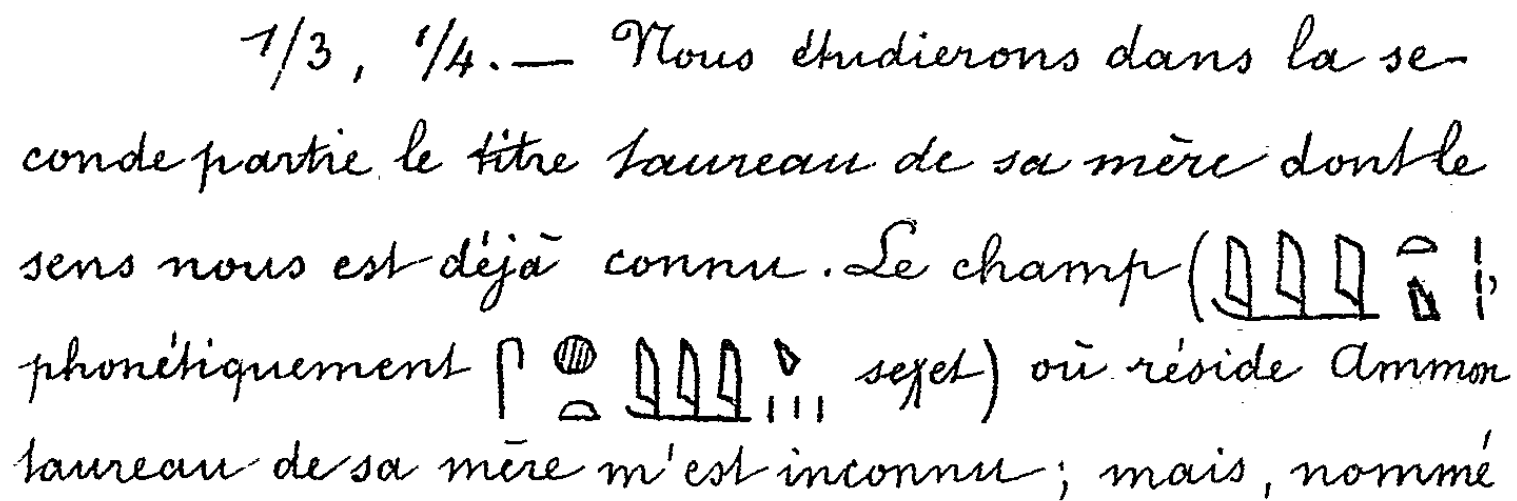 1/3, 1/4. — Nous étudierons dans la se-
conde partie le titre taureau de sa mère dont le
sens nous est déjà connu. Le champ (
phonétiquement seχet) où réside Ammon
taureau de sa mère m'est inconnu ; mais, nommé